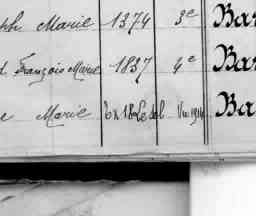 ph Marie 1374 3e Bar
d François Marie 1837 4e Bar
e Marie Ba